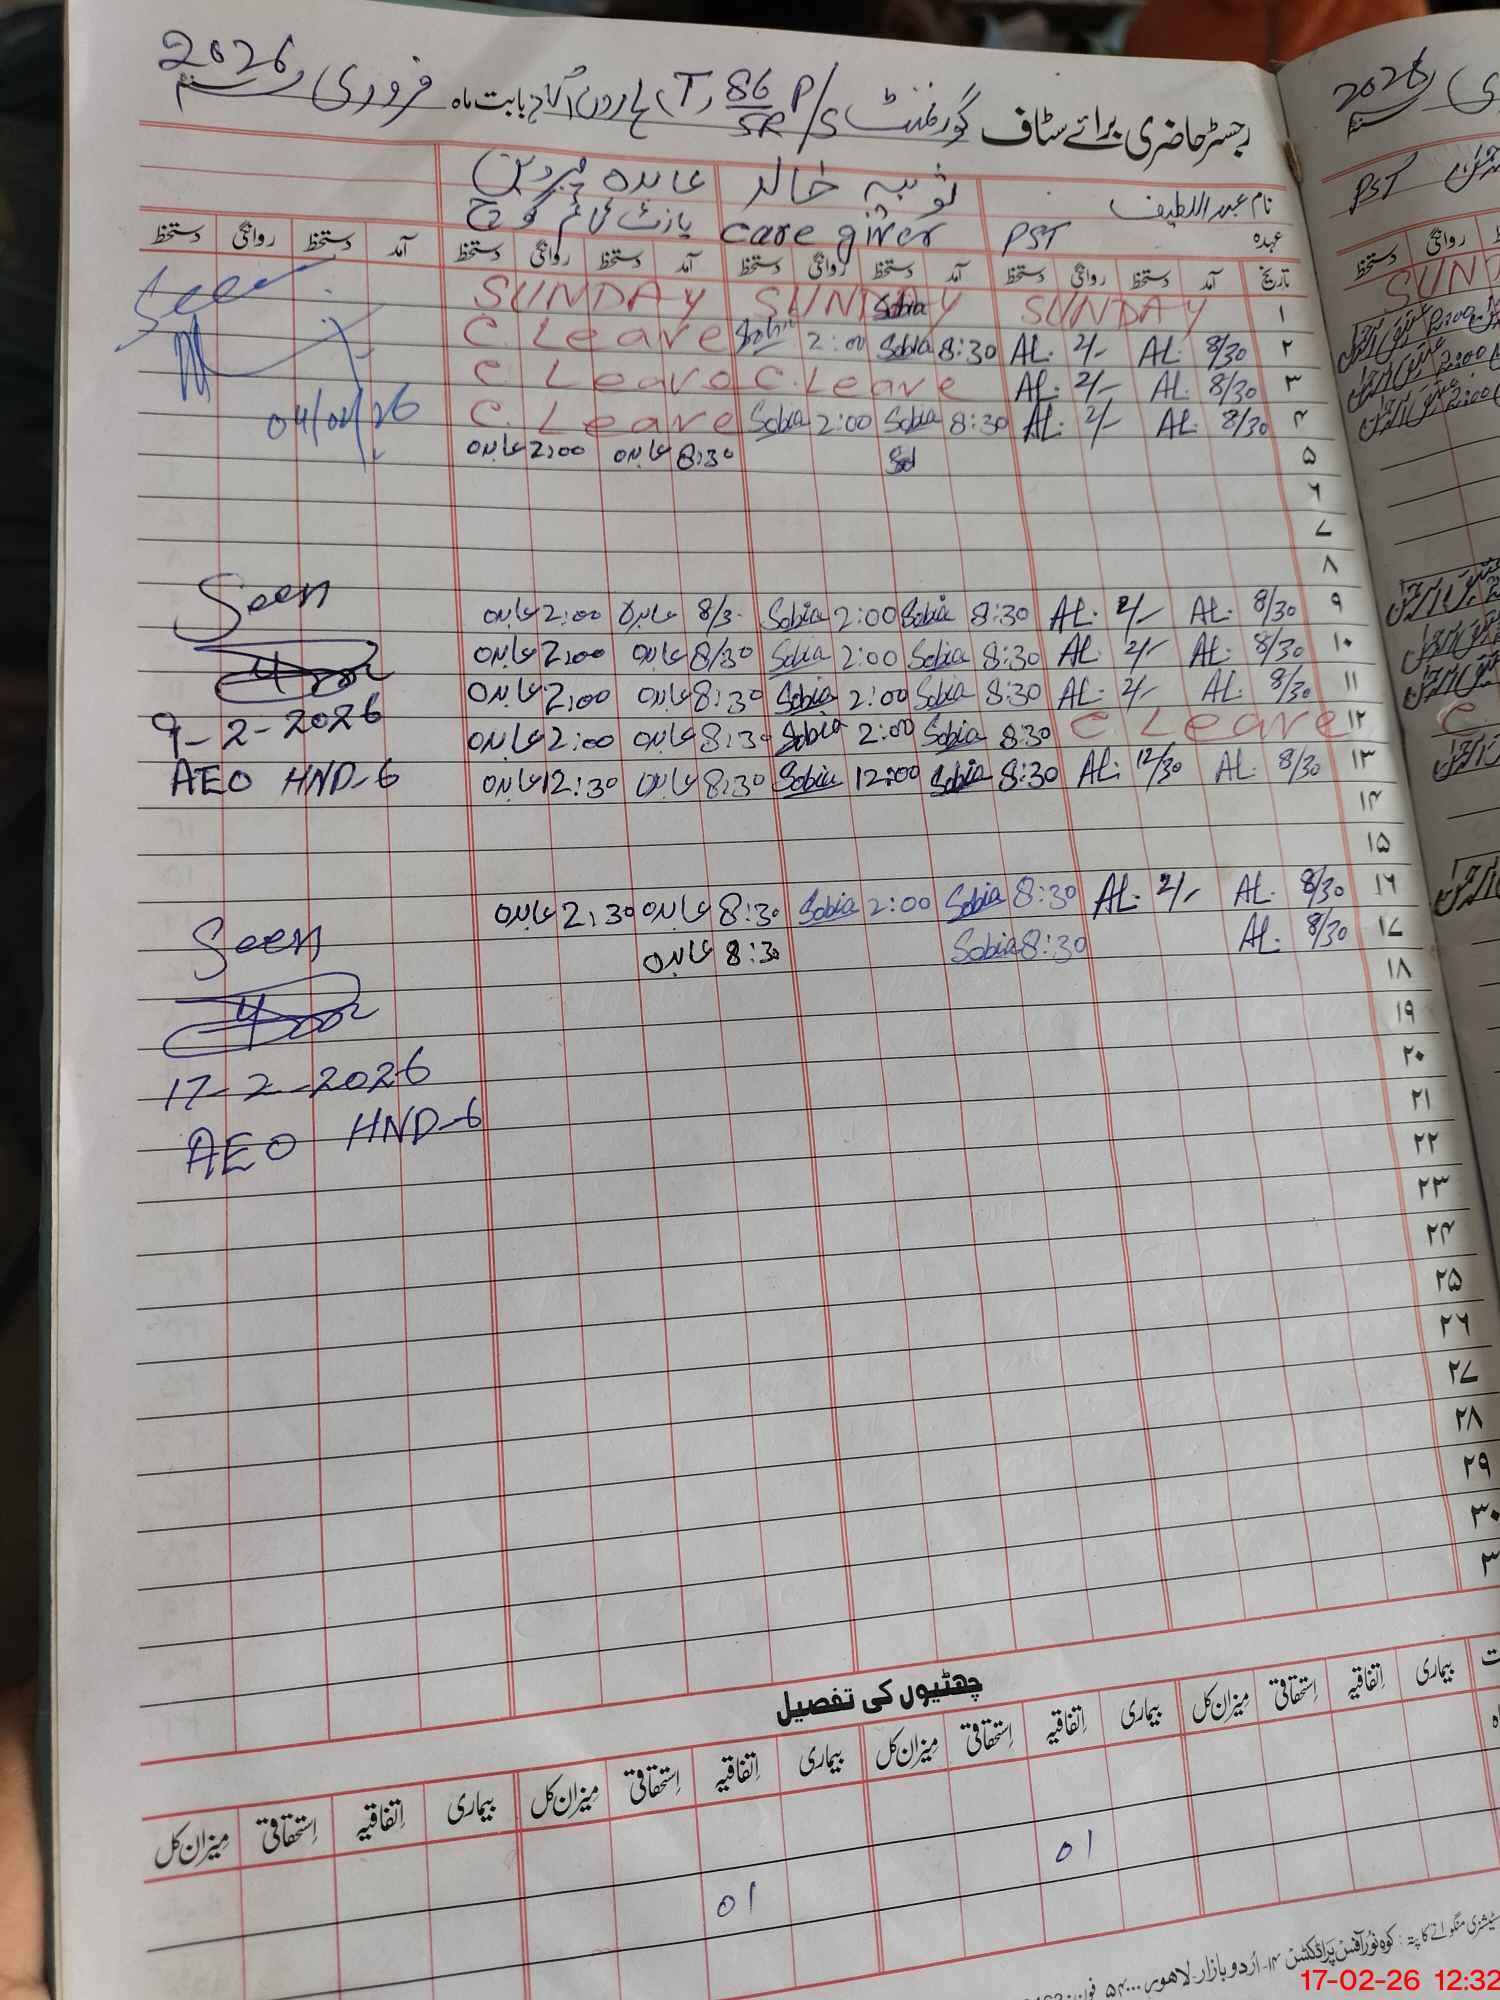 رجسٹر حاضری برائے سٹاف گورنمنٹ P/S 86/5R (T) ہارون آباد بابت ماہ فروری سنہ 2026
نام عبداللطیف ثوبیہ خالد عابدہ پروین
عہدہ PST care giver
تاریخ آمد دستخط روانگی دستخط آمد دستخط روانگی دستخط آمد دستخط روانگی دستخط آمد دستخط روانگی دستخط
۱ SUNDAY SUNDAY SUNDAY
۲ 8/30 AL. 2/- AL. 8:30 Sobia 2:00 Sobia C. Leave
۳ 8/30 AL. 2/- AL. C. Leave C. Leave
۴ 8/30 AL. 2/- AL. 8:30 Sobia 2:00 Sobia C. Leave
۵ 8:30 عابدہ 2:00 عابدہ
۶
۷
۸
۹ 8/30 AL. 2/- AL. 8:30 Sobia 2:00 Sobia 8/30 عابدہ 2:00 عابدہ
۱۰ 8/30 AL. 2/- AL. 8:30 Sobia 2:00 Sobia 8/30 عابدہ 2:00 عابدہ
۱۱ 8/30 AL. 2/- AL. 8:30 Sobia 2:00 Sobia 8:30 عابدہ 2:00 عابدہ
۱۲ C. Leave 8:30 Sobia 2:00 Sobia 8:30 عابدہ 2:00 عابدہ
۱۳ 8/30 AL. 12/30 AL. 8:30 Sobia 12:00 Sobia 8:30 عابدہ 12:30 عابدہ
۱۴
۱۵
۱۶ 8/30 AL. 2/- AL. 8:30 Sobia 2:00 Sobia 8:30 عابدہ 2:30 عابدہ
۱۷ 8/30 AL. 8:30 Sobia 8:30 عابدہ
۱۸
۱۹
۲۰
۲۱
۲۲
۲۳
۲۴
۲۵
۲۶
۲۷
۲۸
۲۹
۳۰
Seen
04/02/26
Seen
9-2-2026
AEO HND-6
Seen
17-2-2026
AEO HND-6
چھٹیوں کی تفصیل
بیماری اتفاقیہ استحقاقی میزان کل بیماری اتفاقیہ استحقاقی میزان کل بیماری اتفاقیہ استحقاقی میزان کل بیماری اتفاقیہ استحقاقی میزان کل
01
01
سٹیشنری منگوانے کا پتہ: کوہ نور آفس پراڈکشن ۱۴-اردو بازار لاہور
2026
PST
17-02-26 12:32